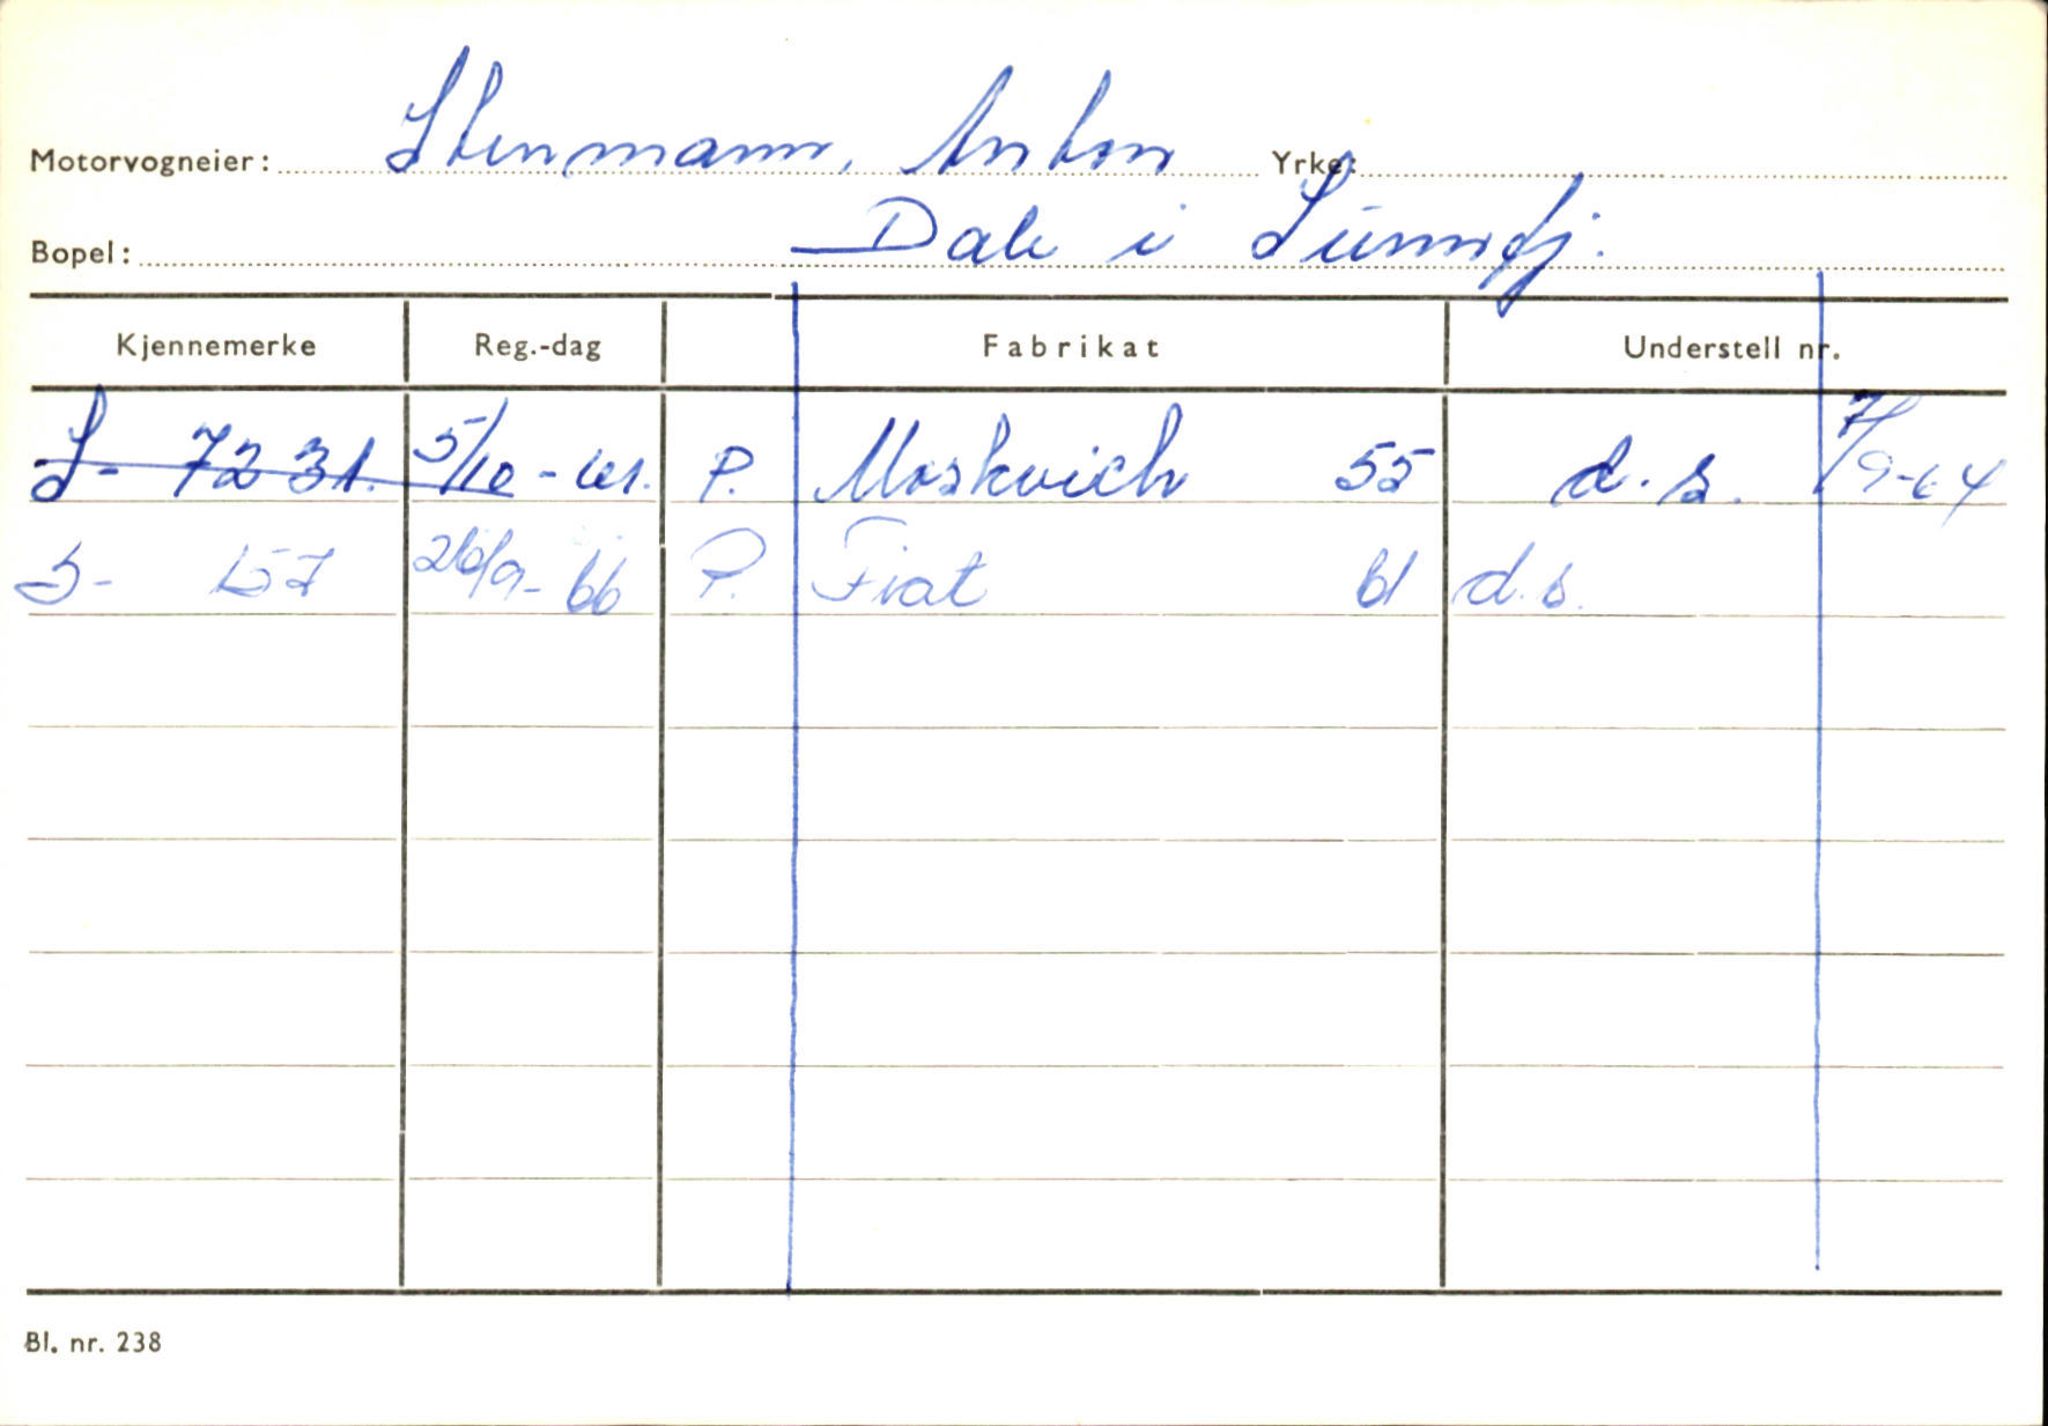 Motorvogneier: Stenmann, Anton Yrke:
Bopel: Dale i Sunnfj.
Kjennemerke Reg.-dag Fabrikat Understell nr.
S- 7231. 5/10-61. P. Moskvich 55 d.s. 7/9-64
S- 157 26/9-66 P. Fiat 61 d.s.
Bl. nr. 238